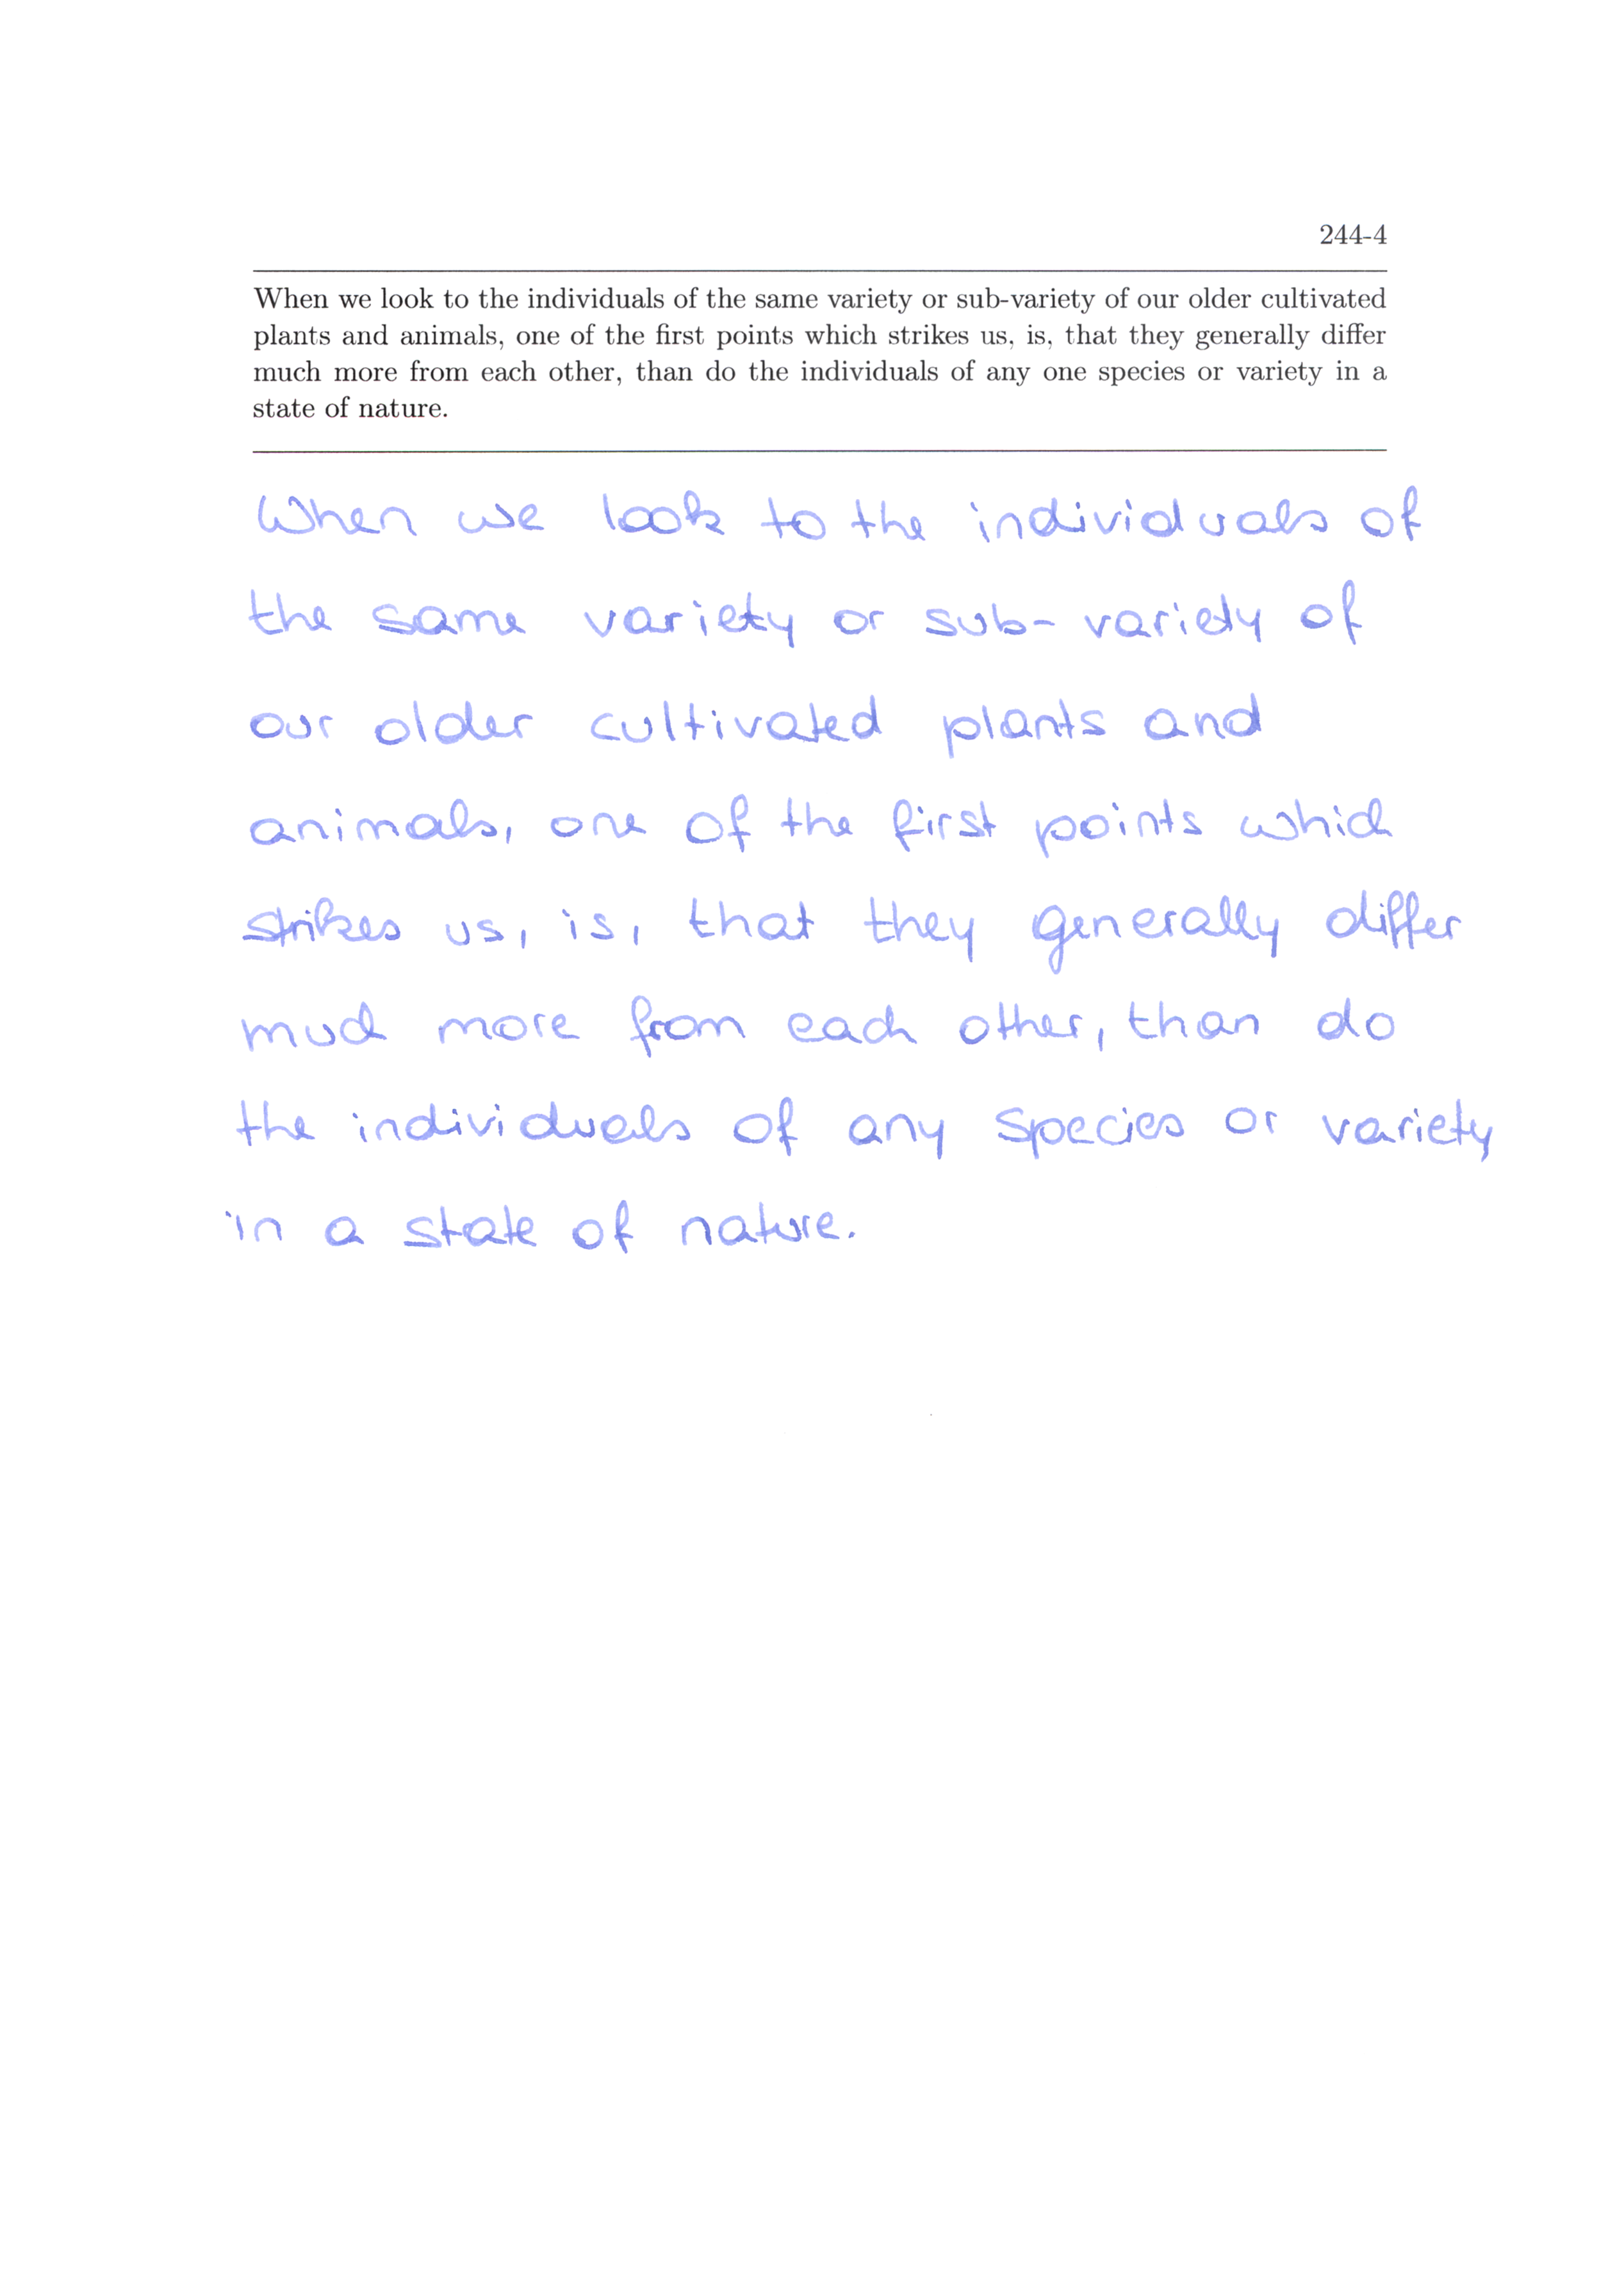 244-4
When we look to the individuals of the same variety or sub-variety of our older cultivated
plants and animals, one of the first points which strikes us, is, that they generally differ
much more from each other, than do the individuals of any one species or variety in a
state of nature.
When we look to the individuals of
the same variety or sub-variety of
our older cultivated plants and
animals, one of the first points which
strikes us, is, that they generally differ
much more from each other, than do
the individuals of any species or variety
in a state of nature.